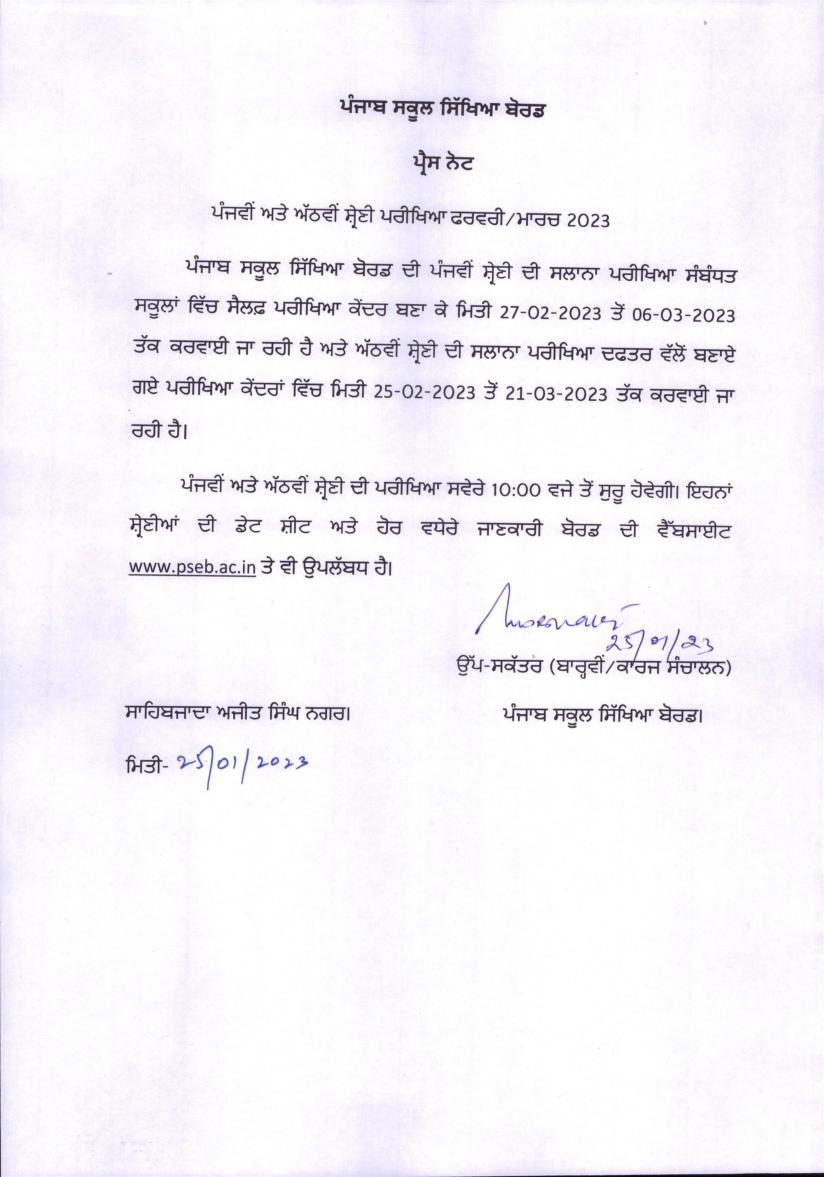 ਪੰਜਾਬ ਸਕੂਲ ਸਿੱਖਿਆ ਬੋਰਡ
ਪ੍ਰੈਸ ਨੋਟ
ਪੰਜਵੀਂ ਅਤੇ ਅੱਠਵੀਂ ਸ਼੍ਰੇਣੀ ਪਰੀਖਿਆ ਫਰਵਰੀ/ਮਾਰਚ 2023
ਪੰਜਾਬ ਸਕੂਲ ਸਿੱਖਿਆ ਬੋਰਡ ਦੀ ਪੰਜਵੀਂ ਸ਼੍ਰੇਣੀ ਦੀ ਸਲਾਨਾ ਪਰੀਖਿਆ ਸੰਬੰਧਤ
ਸਕੂਲਾਂ ਵਿੱਚ ਸੈਲਫ਼ ਪਰੀਖਿਆ ਕੇਂਦਰ ਬਣਾ ਕੇ ਮਿਤੀ 27-02-2023 ਤੋਂ 06-03-2023
ਤੱਕ ਕਰਵਾਈ ਜਾ ਰਹੀ ਹੈ ਅਤੇ ਅੱਠਵੀਂ ਸ਼੍ਰੇਣੀ ਦੀ ਸਲਾਨਾ ਪਰੀਖਿਆ ਦਫਤਰ ਵੱਲੋਂ ਬਣਾਏ
ਗਏ ਪਰੀਖਿਆ ਕੇਂਦਰਾਂ ਵਿੱਚ ਮਿਤੀ 25-02-2023 ਤੋਂ 21-03-2023 ਤੱਕ ਕਰਵਾਈ ਜਾ
ਰਹੀ ਹੈ।
ਪੰਜਵੀਂ ਅਤੇ ਅੱਠਵੀਂ ਸ਼੍ਰੇਣੀ ਦੀ ਪਰੀਖਿਆ ਸਵੇਰੇ 10:00 ਵਜੇ ਤੋਂ ਸੁਰੂ ਹੋਵੇਗੀ। ਇਹਨਾਂ
ਸ਼੍ਰੇਣੀਆਂ ਦੀ ਡੇਟ ਸ਼ੀਟ ਅਤੇ ਹੋਰ ਵਧੇਰੇ ਜਾਣਕਾਰੀ ਬੋਰਡ ਦੀ ਵੈੱਬਸਾਈਟ
www.pseb.ac.in ਤੇ ਵੀ ਉਪਲੱਬਧ ਹੈ।
25/01/23
ਉੱਪ-ਸਕੱਤਰ (ਬਾਰ੍ਹਵੀਂ/ਕਾਰਜ ਸੰਚਾਲਨ)
ਸਾਹਿਬਜਾਦਾ ਅਜੀਤ ਸਿੰਘ ਨਗਰ। ਪੰਜਾਬ ਸਕੂਲ ਸਿੱਖਿਆ ਬੋਰਡ।
ਮਿਤੀ- 25/01/2023